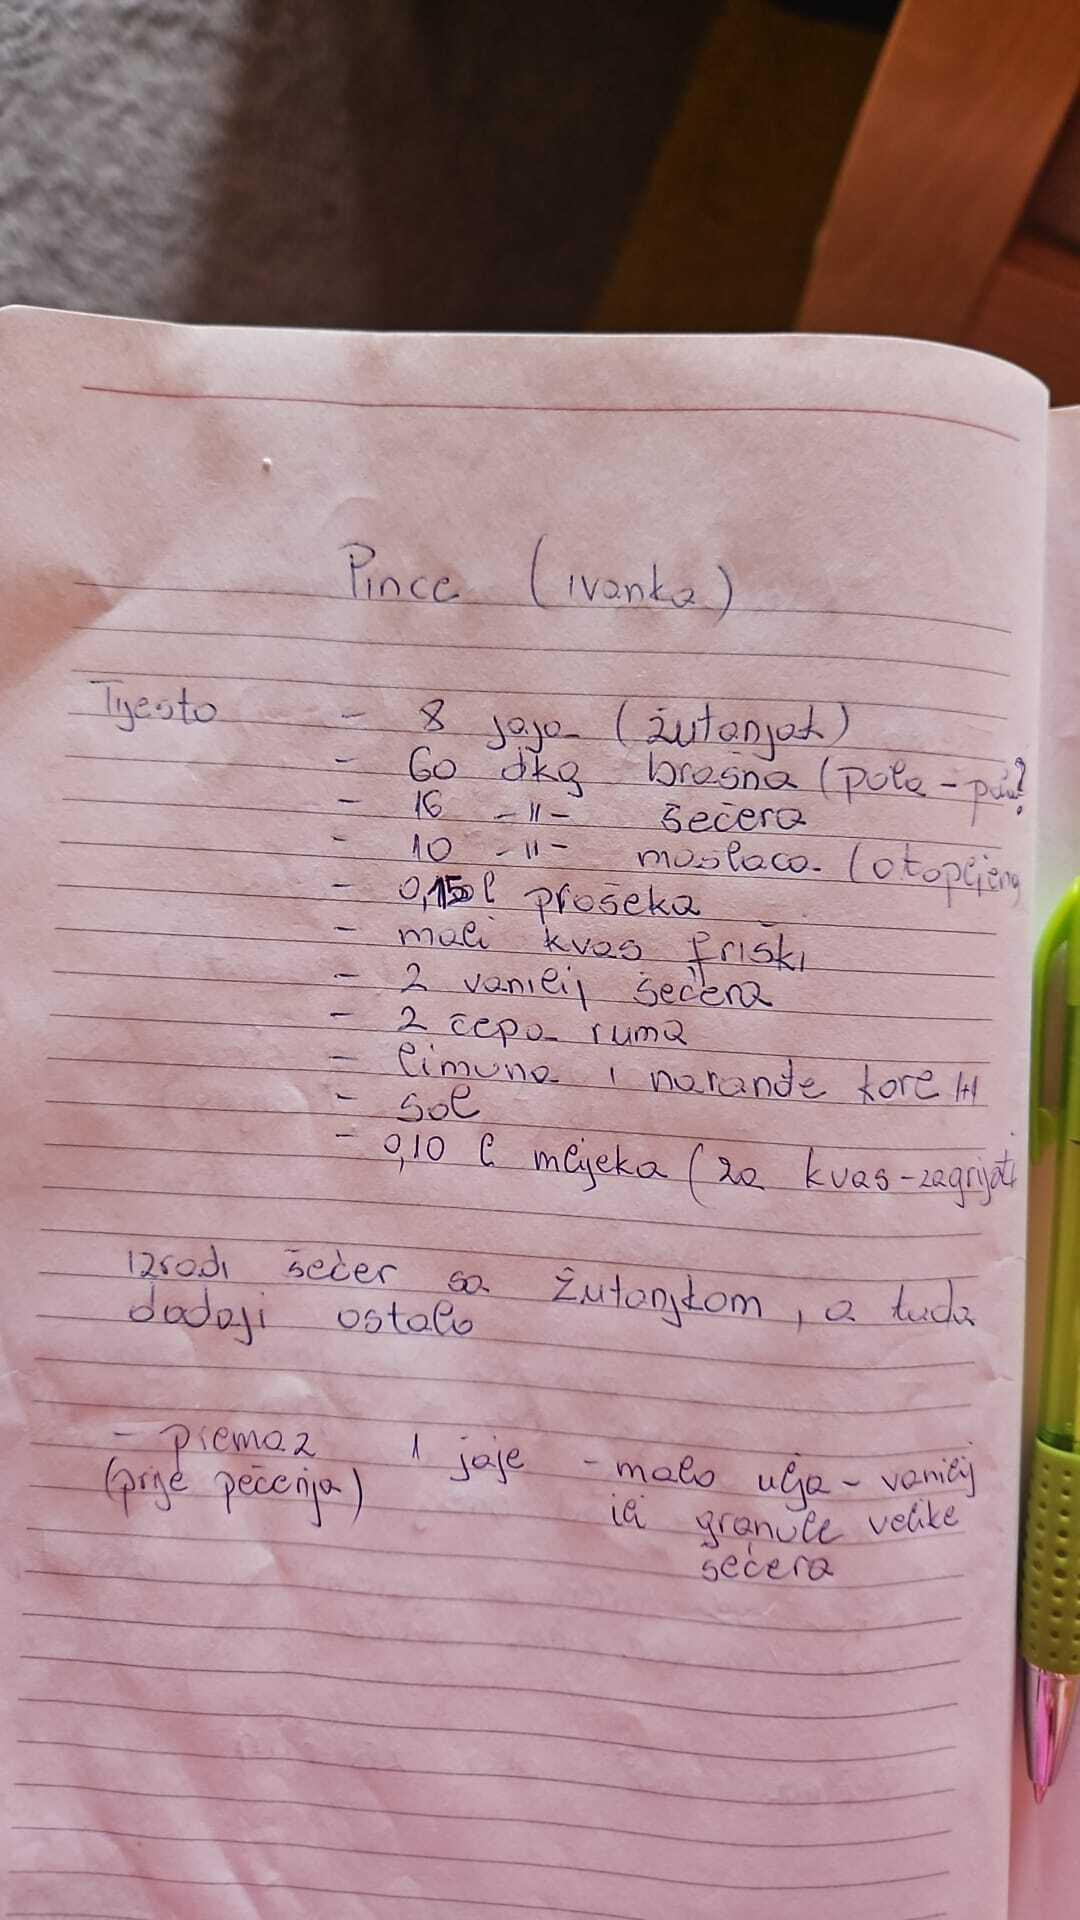 Pince (ivanka)
Tijesto - 8 jaja (žutanjak)
- 60 dkg brašna (pola - pola?
- 16 -||- šećera
- 10 -||- maslaca (otopljeng
- 0,15 l prošeka
- mali kvas friški
- 2 vanilij šećera
- 2 čepa ruma
- limuna i naranđe kore 1+1
- sol
- 0,10 l mlijeka (za kvas-zagrijati
izradi šećer sa žutanjkom, a tada
dodaji ostalo
- premaz 1 jaje - malo ulja - vanilij
(prije pečenja) ili granule velike
šećera